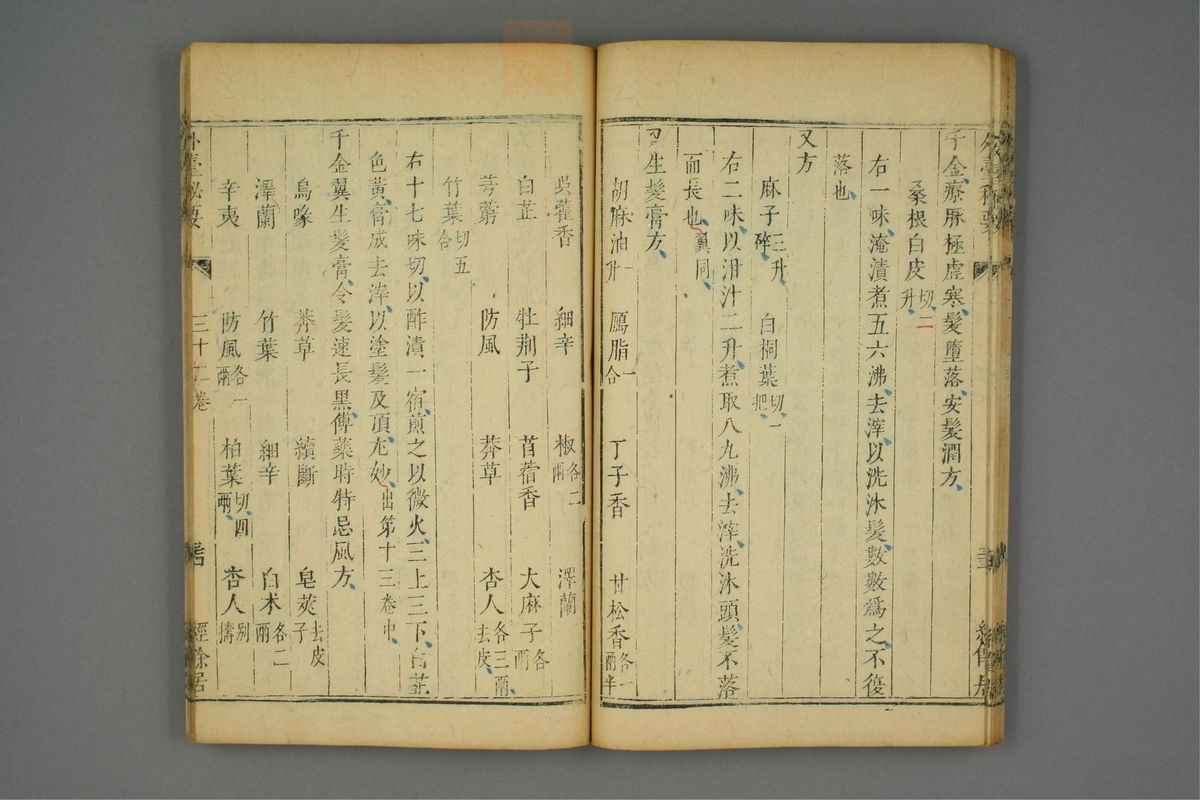 外臺秘要
千金療脈極虛寒髮墮落安髮潤方
桑根白皮切二升
右一味淹漬煮五六沸去滓以洗沐髮數數爲之不復
落也
又方
麻子三升碎 白桐葉切一把
右二味以泔汁二升煮取八九沸去滓洗沐頭髮不落
而長也翼同
又生髮膏方
胡麻油一升 鴈脂一合 丁子香 甘松香各一兩半
吳藿香 細辛 椒各二兩 澤蘭
白芷 牡荆子 苜蓿香 大麻子各一兩
芎藭 防風 莽草 杏人各三兩去皮
竹葉切五合
右十七味切以酢漬一宿煎之以微火三上三下白芷
色黃膏成去滓以塗髮及頂尤妙出第十三卷中
千金翼生髮膏令髮速長黑傅藥時特忌風方
烏喙 莽草 續斷 皂莢去皮子
澤蘭 竹葉 細辛 白术各二兩
辛夷 防風各一兩 柏葉切四兩 杏人別擣
外臺秘要 三十二卷 經餘居